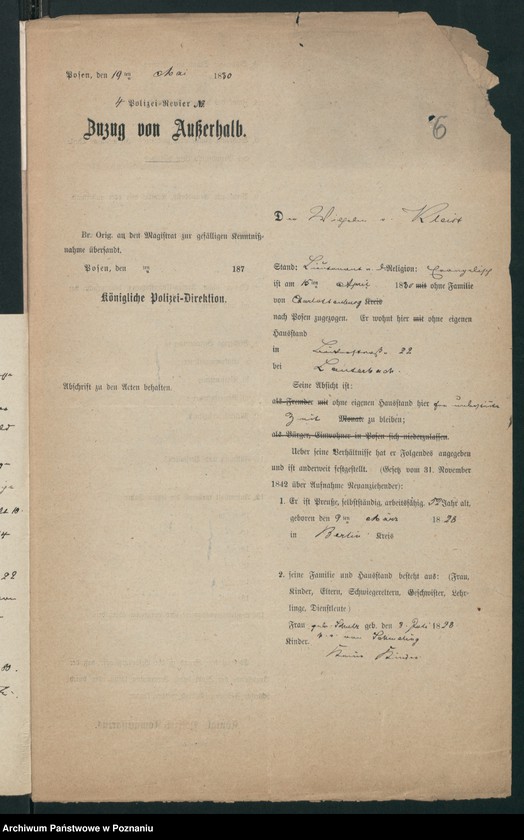 Posen, den 19ten Mai 1880
4 Polizei-Revier №
Zuzug von Außerhalb.
6
Br. Orig. an den Magistrat zur gefälligen Kenntniß-
nahme übersandt.
Posen, den ten 187
Königliche Polizei-Direktion.
Abschrift zu den Acten behalten.
Der Wilhelm v. Kleist
Stand: Lieutenant a. D Religion: Evangelisch
ist am 15ten April 1880 mit ohne Familie
von Charlottenburg Kreis
nach Posen zugezogen. Er wohnt hier mit ohne eigenen
Hausstand
in 22
bei Lauterbach.
Seine Absicht ist:
als Fremder mit ohne eigenen Hausstand hier auf unbestimmte
Zeit Monat zu bleiben;
als Bürger, Einwohner in Posen sich niederzulassen.
Ueber seine Verhältnisse hat er Folgendes angegeben
und ist anderweit festgestellt. (Gesetz vom 31. November
1842 über Aufnahme Neuanziehender):
1. Er ist Preuße, selbstständig, arbeitsfähig. Jahr alt.
geboren den 9ten März 1828
in Berlin Kreis
2. seine Familie und Hausstand besteht aus: (Frau,
Kinder, Eltern, Schwiegereltern, Geschwister, Lehr-
linge, Dienstleute)
Frau geb. Schulz geb. den 3. Juli 1828
Kinder. von
Keine Kinder
Archiwum Państwowe w Poznaniu